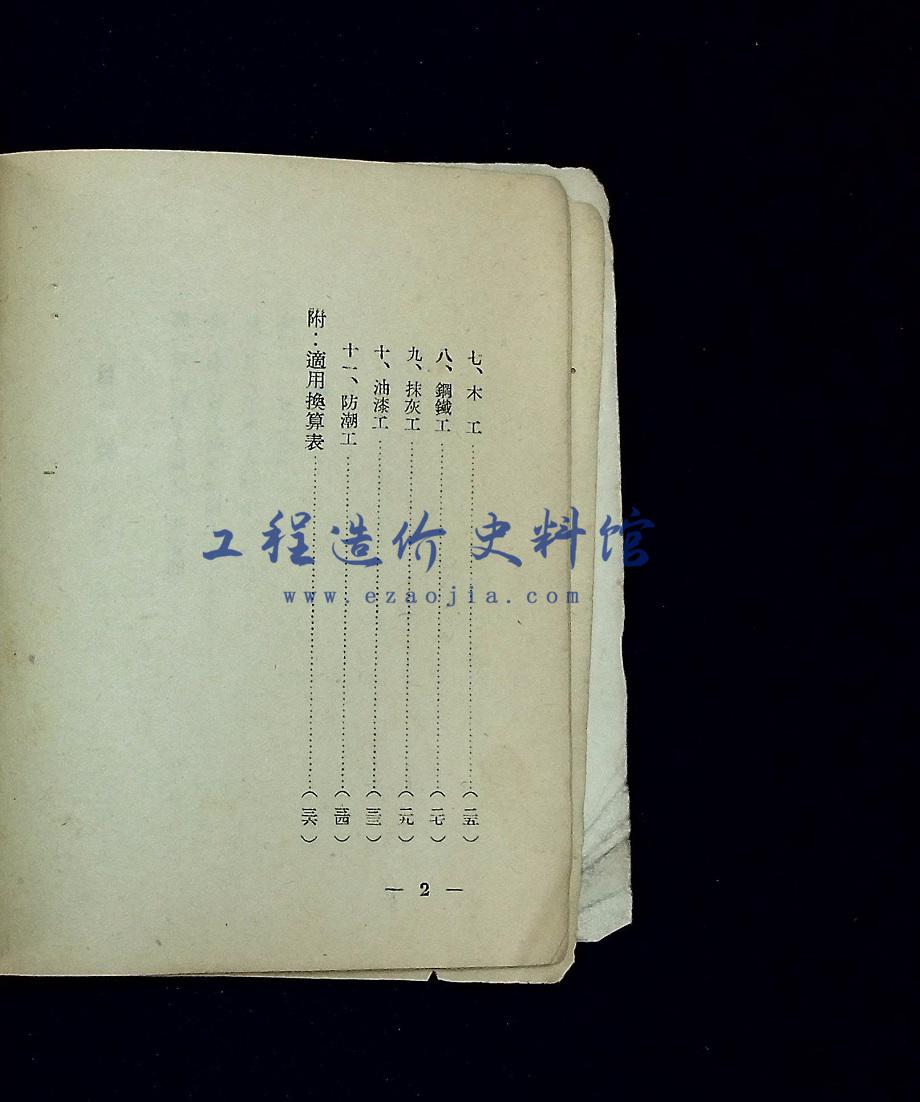 七、木　工……（二五）
八、鋼鐵工……（二七）
九、抹灰工……（二九）
十、油漆工……（）
十一、防潮工……（三四）
附：適用換算表……（三六）
— 2 —
工程造价史料馆
www.ezaojia.com